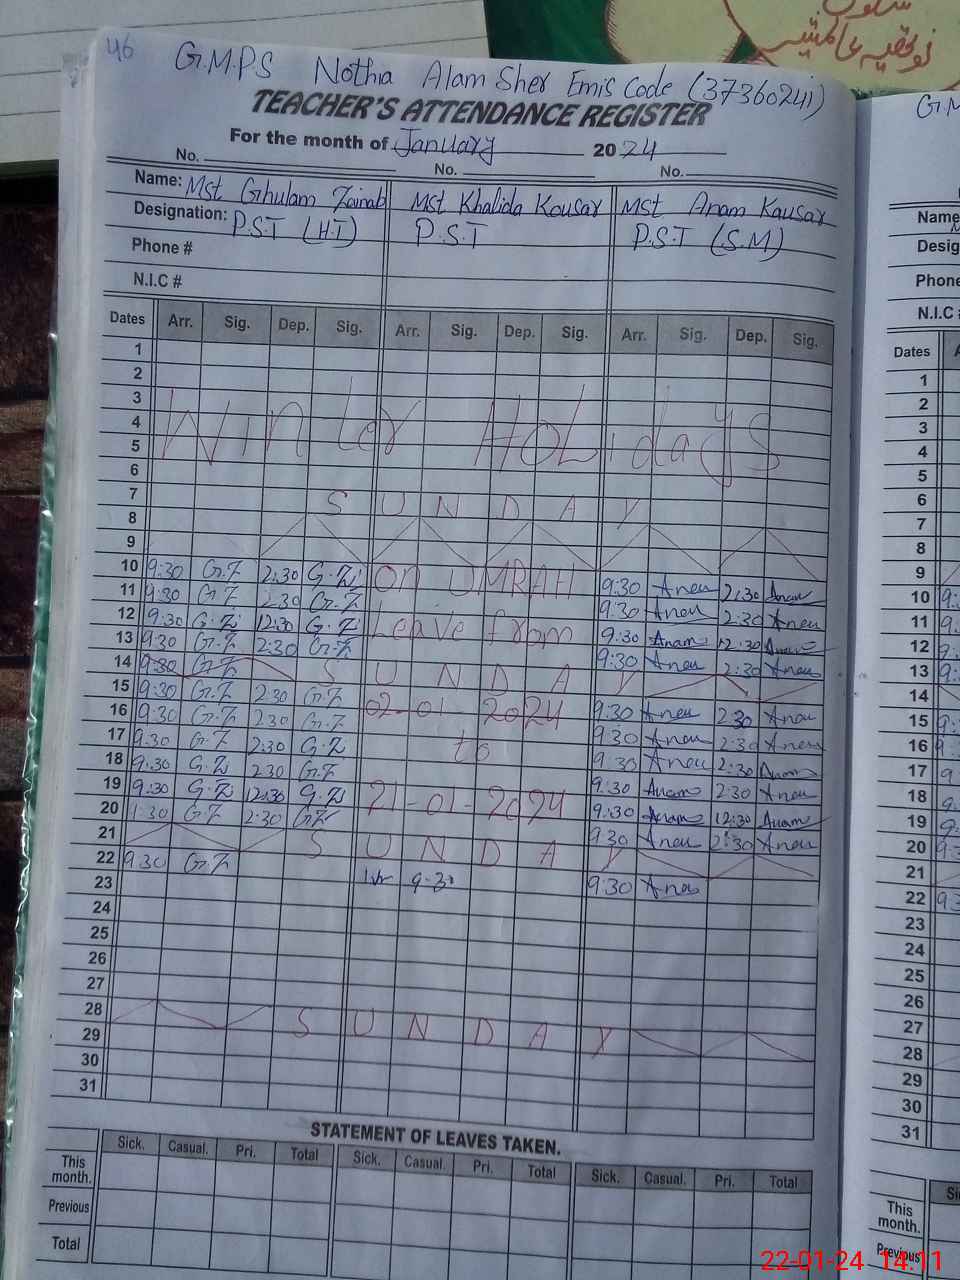 46 G.M.P.S Notha Alam Sher Emis Code (37360241)
TEACHER'S ATTENDANCE REGISTER
For the month of January 2024
No. No. No.
Name: Mst Ghulam Zainab Mst Khalida Kousar Mst Anam Kausar
Designation: P.S.T (H.T) P.S.T P.S.T (S.M)
Phone #
N.I.C #
Dates Arr. Sig. Dep. Sig. Arr. Sig. Dep. Sig. Arr. Sig. Dep. Sig.
1
2
3
4 Winter Holidays
5
6
7 SUNDAY
8
9
10 9:30 G.Z 2:30 G.Z on UMRAH 9:30 Anam 2:30 Anam
11 9:30 G.Z 2:30 G.Z 9:30 Anam 2:30 Anam
12 9:30 G.Z 12:30 G.Z Leave from 9:30 Anam 12:30 Anam
13 9:30 G.Z 2:30 G.Z 9:30 Anam 2:30 Anam
14 9:30 G.Z SUNDAY
15 9:30 G.Z 2:30 G.Z 02-01-2024 9:30 Anam 2:30 Anam
16 9:30 G.Z 2:30 G.Z 9:30 Anam 2:30 Anam
17 9:30 G.Z 2:30 G.Z to 9:30 Anam 2:30 Anam
18 9:30 G.Z 2:30 G.Z 9:30 Anam 2:30 Anam
19 9:30 G.Z 12:30 G.Z 21-01-2024 9:30 Anam 12:30 Anam
20 9:30 G.Z 2:30 G.Z 9:30 Anam 2:30 Anam
21 SUNDAY
22 9:30 G.Z 9-30 9:30 Anam
23
24
25
26
27
28 SUNDAY
29
30
31
STATEMENT OF LEAVES TAKEN.
Sick. Casual. Pri. Total Sick. Casual. Pri. Total Sick. Casual. Pri. Total
This month.
Previous
Total
G.M
Name
Desig
Phone
N.I.C
Dates
1
2
3
4
5
6
7
8
9
10 9:
11
12
13
14
15
16
17
18
19
20 9:3
21
22 9:3
23
24
25
26
27
28
29
30
31
Si
This month.
Previous
22-01-24 14:11